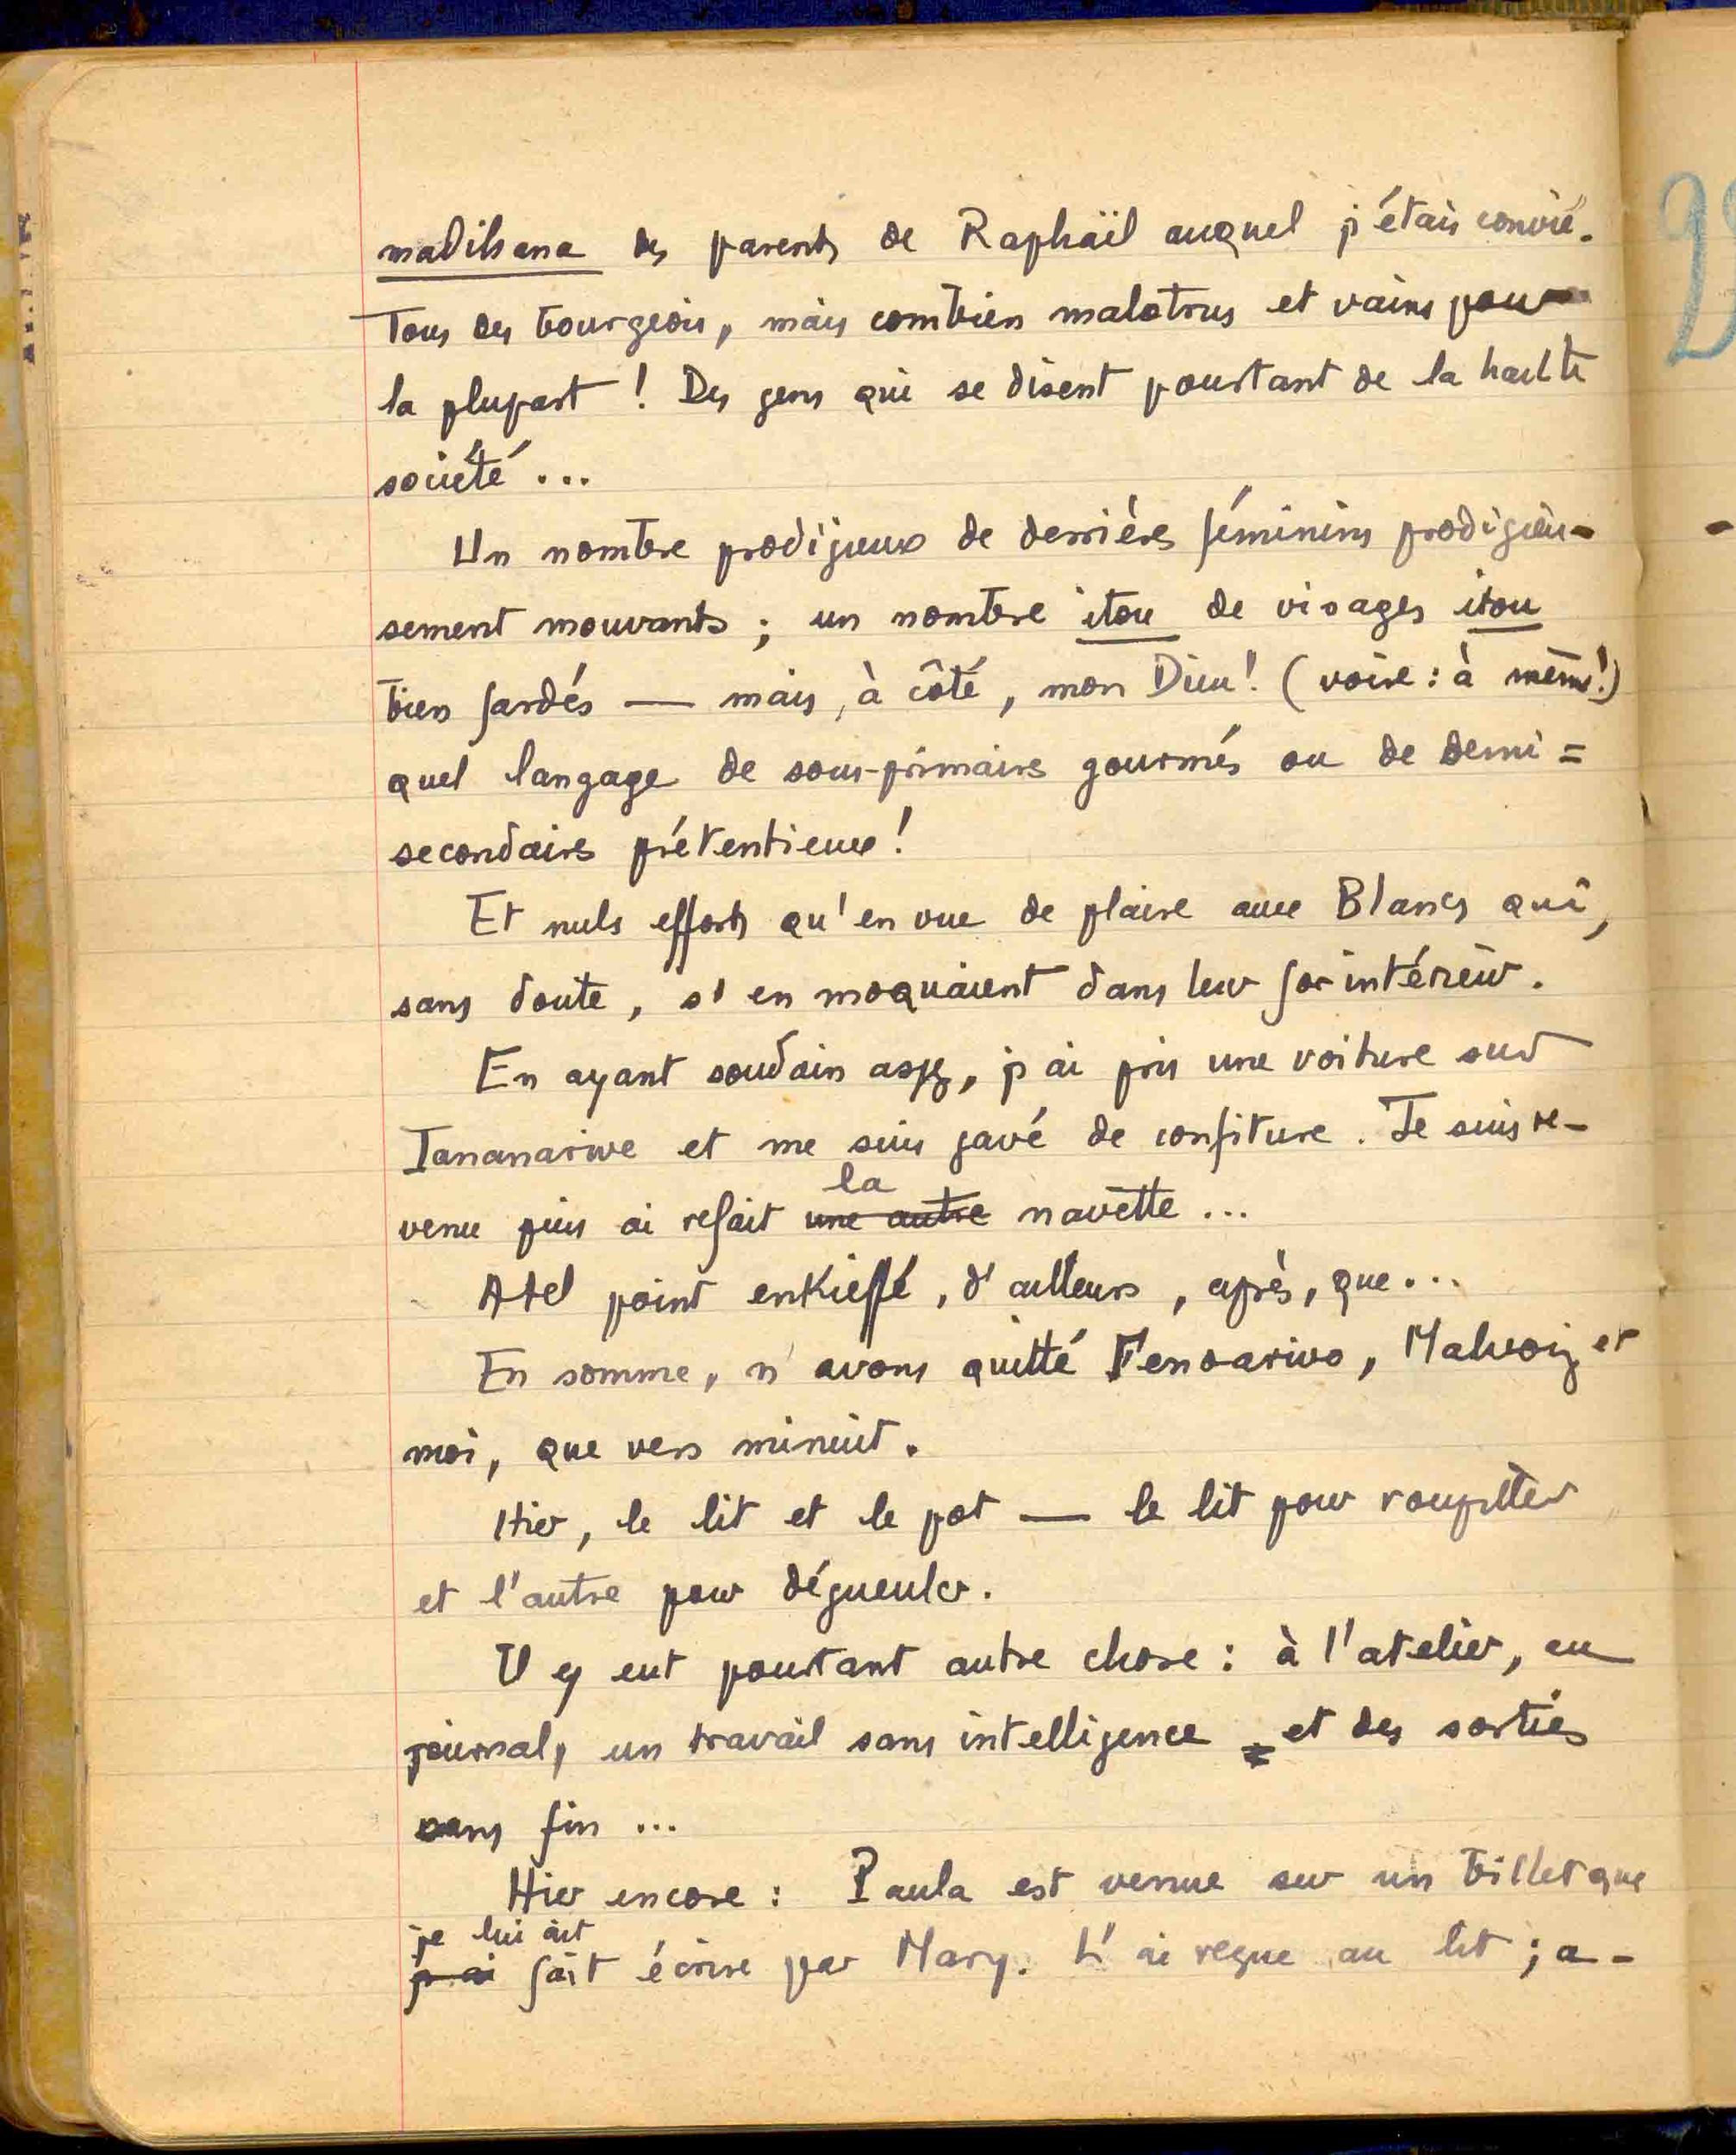 madilsana des parents de Raphaël auquel j'étais convié.
Tous des bourgeois, mais combien malotrus et vains pour
la plupart ! Des gens qui se disent pourtant de la haute
société ...
Un nombre prodigieux de derrières féminins prodigieu-
sement mouvants ; un nombre itou de visages itou
bien fardés — mais, à côté, mon Dieu ! (voire : à même !)
quel langage de sous-primaires gourmés ou de demi=
secondaires prétentieux !
Et nuls efforts qu'en vue de plaire aux Blancs qui,
sans doute, s'en moquaient dans leur for intérieur.
En ayant soudain assez, j'ai pris une voiture sur
Tananarive et me suis gavé de confiture. Je suis re-
la
venu puis ai refait une autre navette ...
A tel point enkieffé, d'ailleurs, après, que ...
En somme, n'avons quitté Fenoarivo, Malvoiz et
moi, que vers minuit.
Hier, le lit et le pot — le lit pour roupiller
et l'autre pour dégueuler.
Il y eut pourtant autre chose : à l'atelier, au
journal, un travail sans intelligence et des sorties
sans fin ...
Hier encore : Paula est venue sur un billet que
je lui ait
j'ai fait écrire par Mary. L'ai reçue au lit ; a-